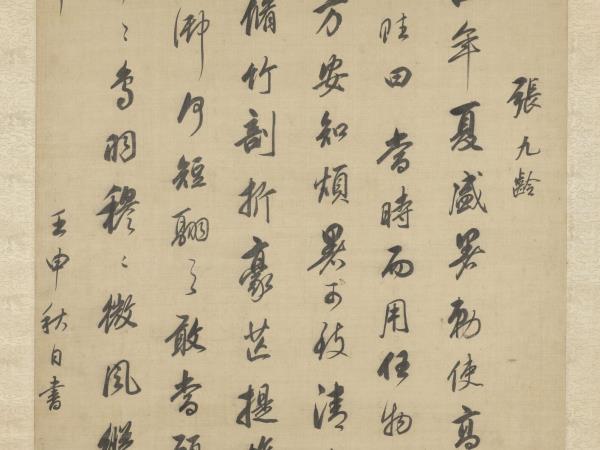 張九齡
年夏盛暑勅使高
賦曰當時而用任物
方安知煩暑可致清
脩竹剖析豪芒提
御何短翮之敢當
羽穆〻微風縱
壬申秋日書